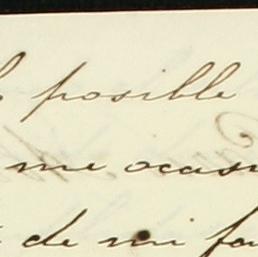 posible
me ocasi
de mi fa